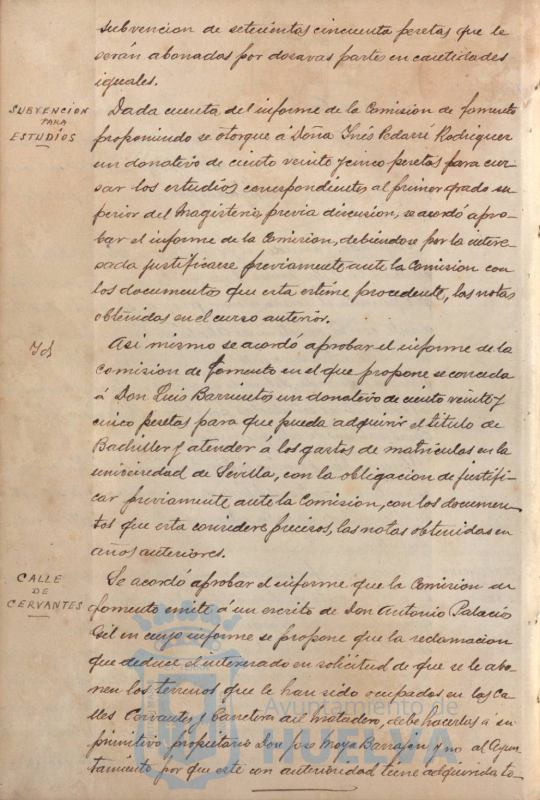 subvencion de setecientas cincuenta pesetas que le
serán abonadas por dozavas partes en cantidades
iguales.
SUBVENCION
PARA
ESTUDIOS
Dada cuenta del informe de la Comision de fomento
proponiendo se otorgue á Doña Inés Pedarré Rodriguez
un donativo de ciento veinte y cinco pesetas para cur-
sar los estudios correspondientes al primer grado su-
perior del Magisterio, previa discusion, se acordó apro-
bar el informe de la Comision, debiendose por la intere-
sada justificarse previamente ante la Comision con
los documentos que esta estime procedente, las notas
obtenidas en el curso anterior.
Id
Asi mismo se acordó aprobar el informe de la
Comision de fomento en el que propone se conceda
á Don Luis Barrientos un donativo de ciento veinte y
cinco pesetas para que pueda adquirir el titulo de
Bachiller y atender á los gastos de matriculas en la
universidad de Sevilla, con la obligacion de justifi-
car previamente ante la Comision, con los documen-
tos que esta considere precisos, las notas obtenidas en
años anteriores.
CALLE
DE
CERVANTES
Se acordó aprobar el informe que la Comision de
fomento emite á un escrito de Don Antonio Palacios
Gil en cuyo informe se propone que la reclamacion
que deduce el interesado en solicitud de que se le abo-
nen los terrenos que le han sido ocupados en las Ca-
lles Cervantes y Carretera del Matadero, debe hacerlas á su
primitivo propietario Don Jose Moya Barragan y no al Ayun-
tamiento por que este con anterioridad tiene adquirida to-
Ayuntamiento de
HUELVA